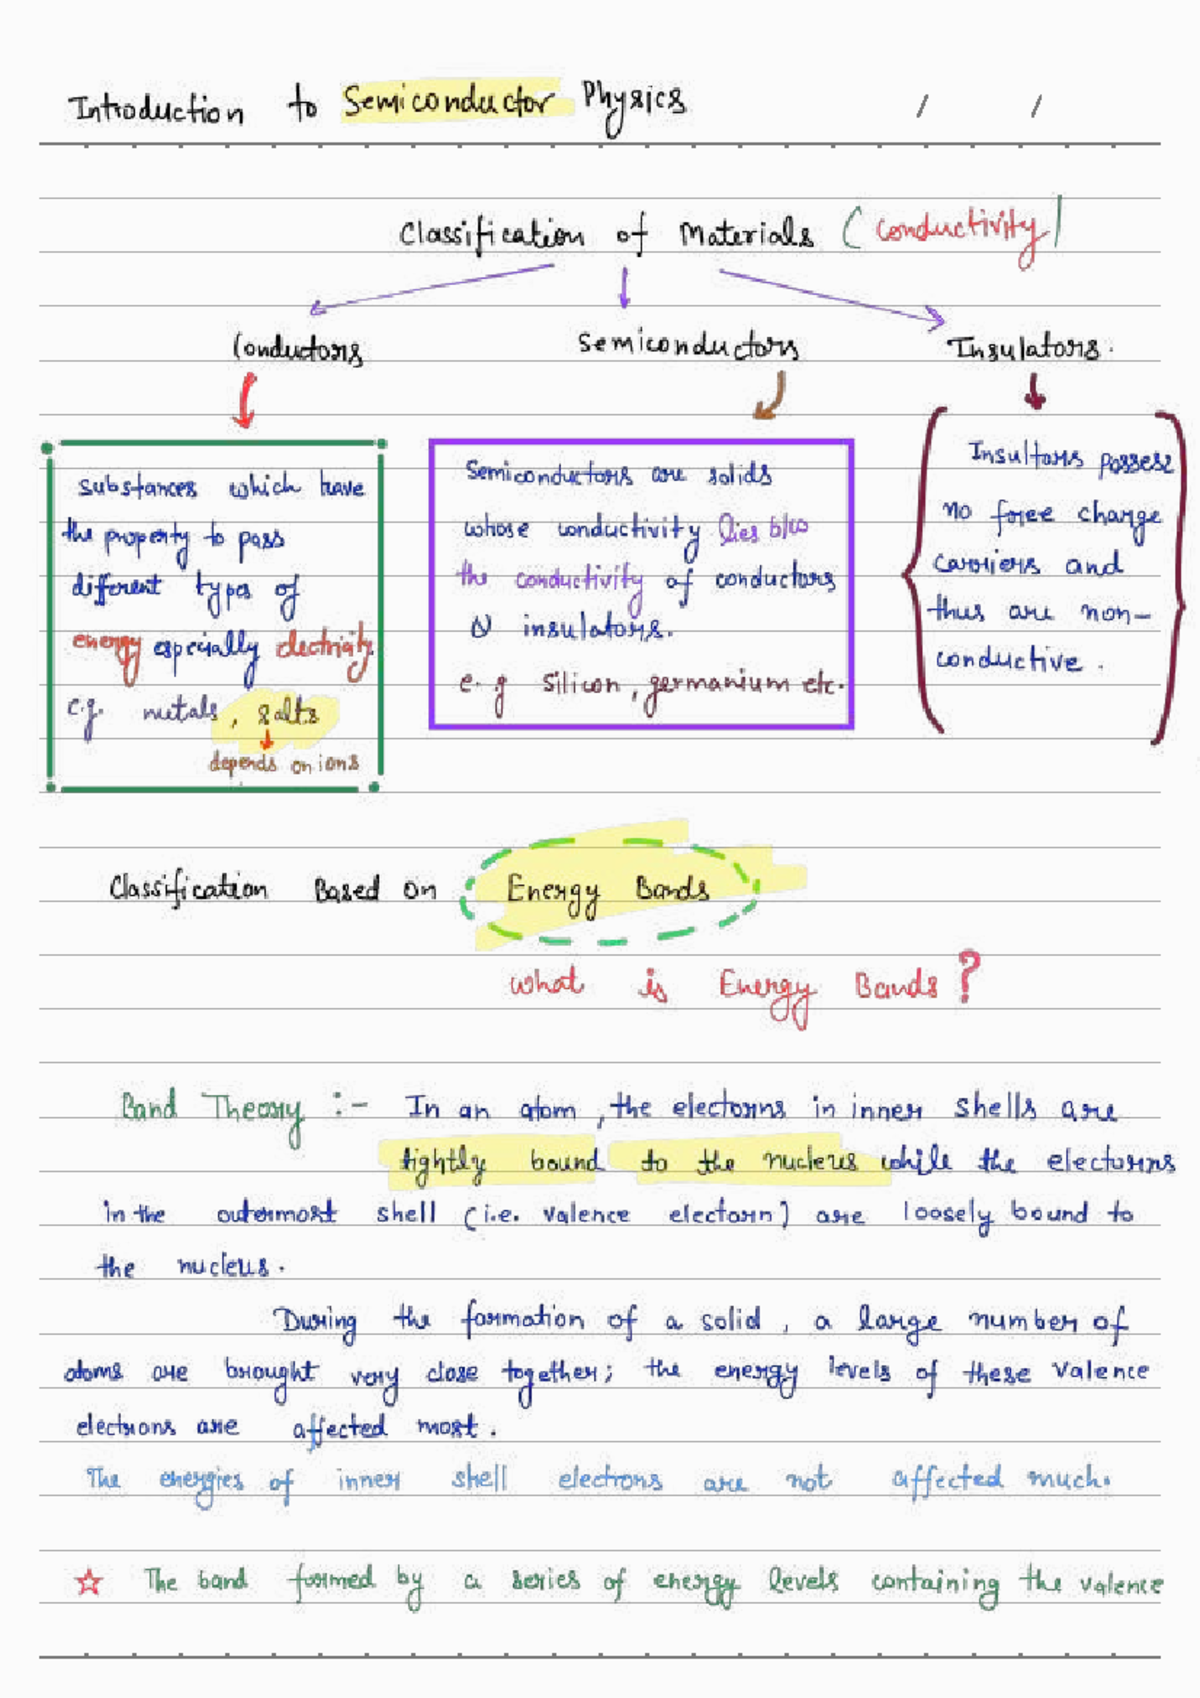 Introduction to Semiconductor Physics / /
Classification of Materials (Conductivity)
Conductors
Semiconductors
Insulators.
substances which have
the property to pass
different types of
energy espcially electricity.
e.g. metals, salts
depends on ions
Semiconductors are solids
whose conductivity lies b/w
the conductivity of conductors
& insulators.
e.g silicon, germanium etc.
Insultors possess
no free charge
carriers and
thus are non-
conductive.
Classification Based on Energy Bands
what is Energy Bands?
Band Theory :- In an atom, the electorns in inner shells are
tightly bound to the nucleus while the electorns
in the outermost shell (i.e. valence electorn) are loosely bound to
the nucleus.
During the formation of a solid, a large number of
atoms are brought very close together; the energy levels of these valence
electrons are affected most.
The energies of inner shell electrons are not affected much.
☆ The band formed by a series of energy levels containing the valence